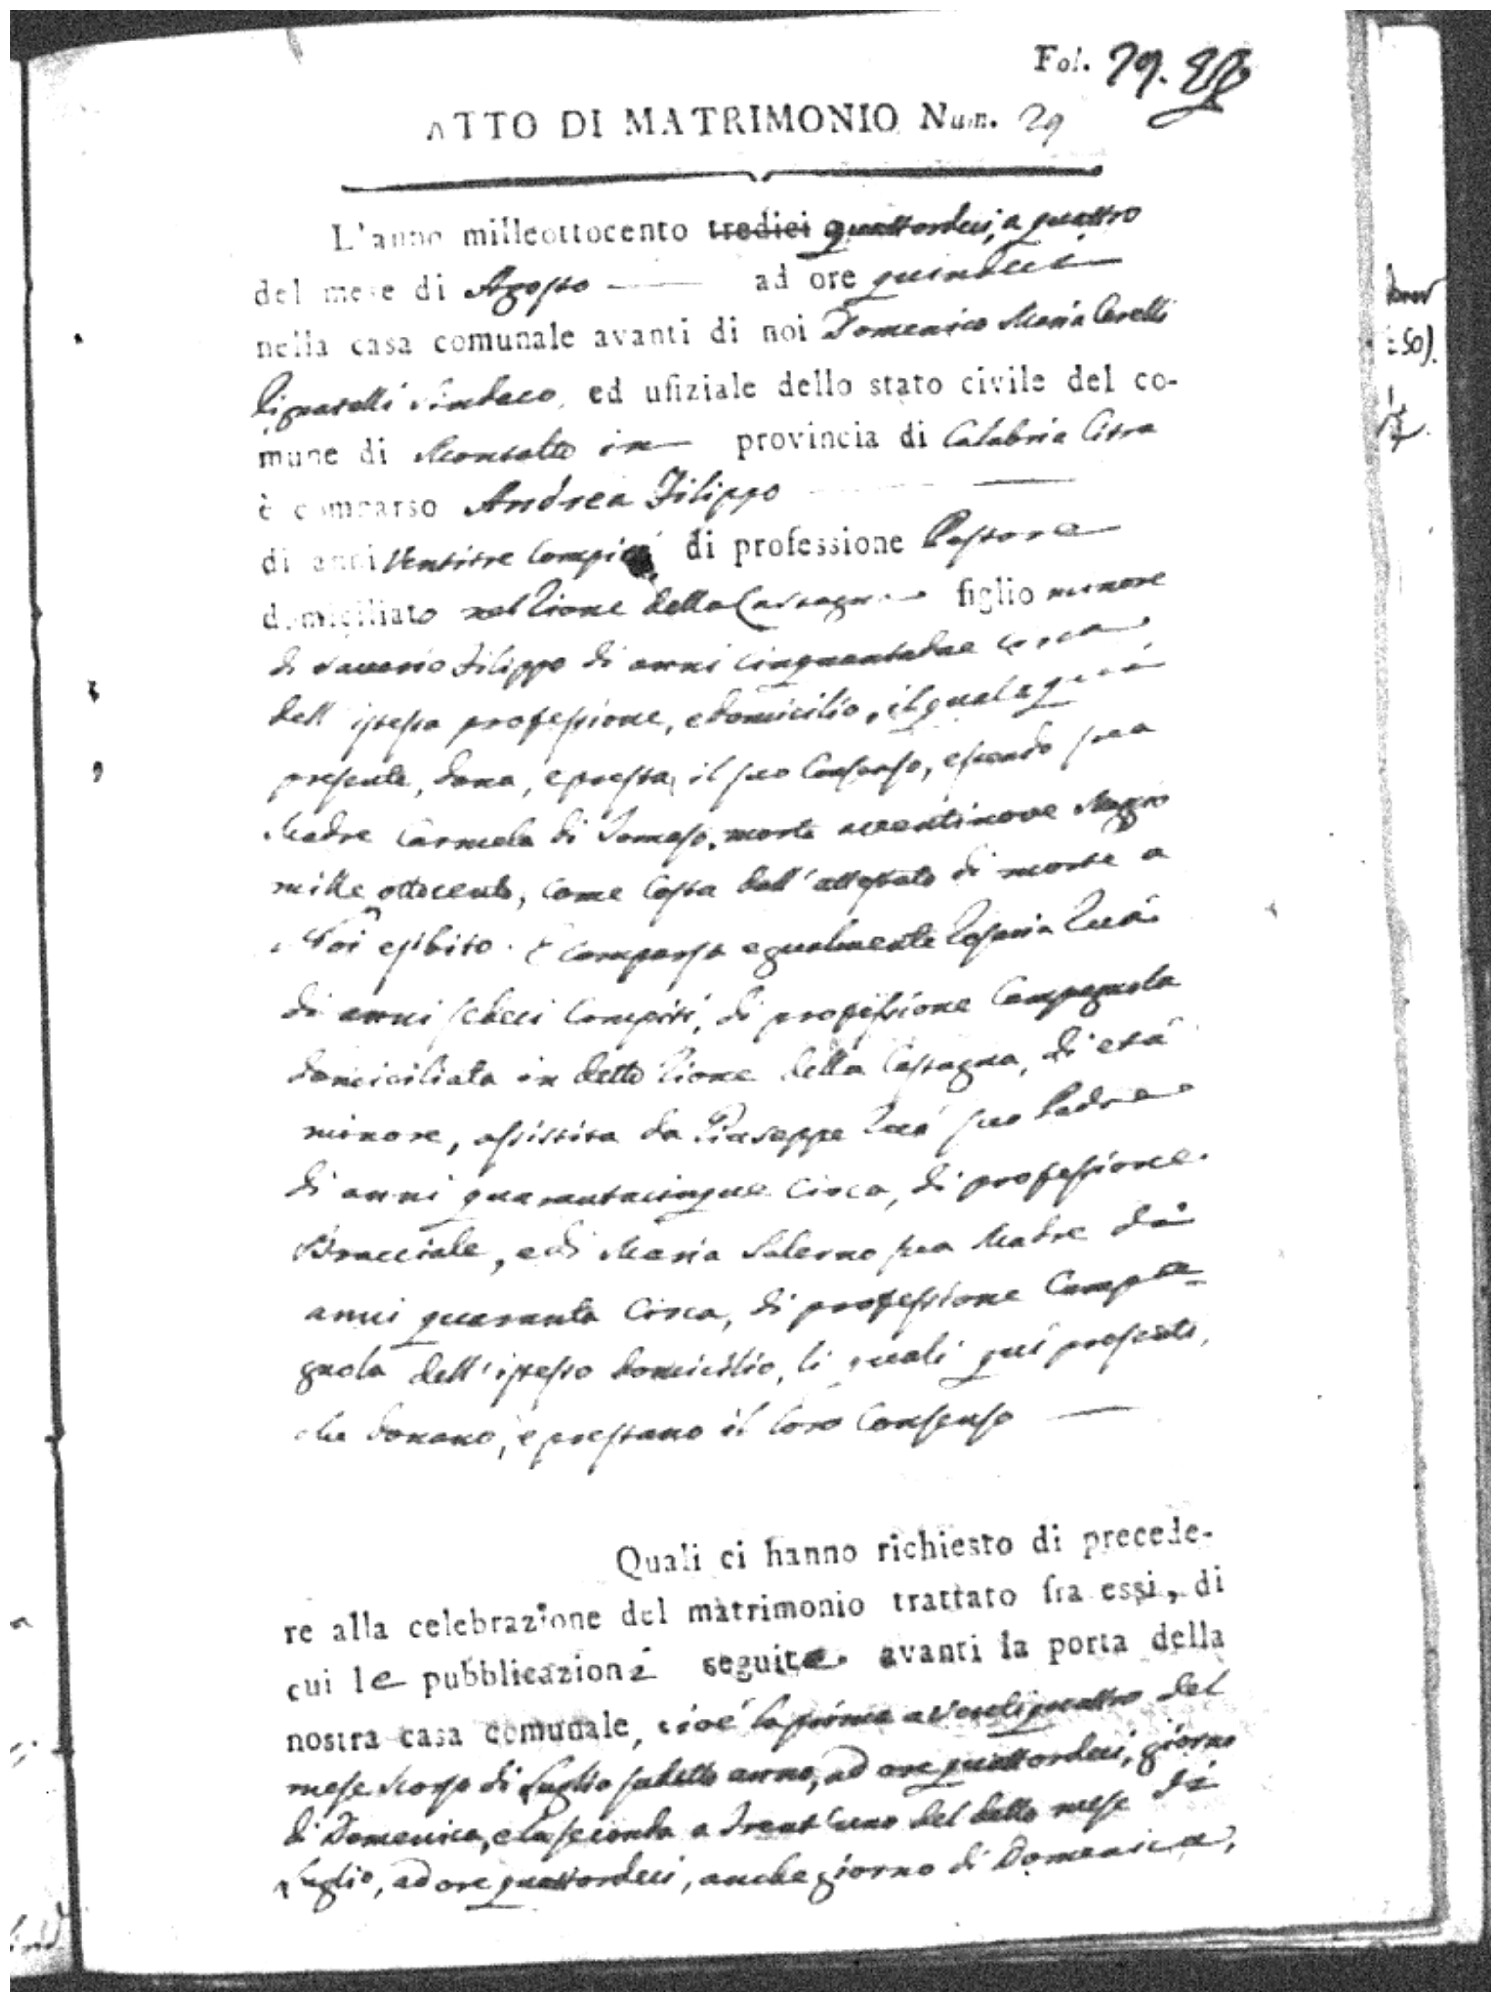 Fol. 29.
ATTO DI MATRIMONIO Num. 29
L'anno milleottocento tredici quattordeci, a quattro
del mese di Agosto ad ore quindeci
nella casa comunale avanti di noi Domenico Maria Cerelli
Pignatelli Sindaco, ed ufiziale dello stato civile del co-
mune di Montalto in provincia di Calabria Citra
è comparso Andrea Filippo
di anni Ventitre Compiti di professione Pastore
domiciliato nel Rione della Castagna figlio minore
di Saverio Filippo di anni cinquantadue circa
dell'istessa professione, e domicilio, il quale qui
presente, dona, e presta, il suo Consenso, essendo sua
Madre Carmela di Tomaso, morta a ventinove Maggio
mille ottocento, come Costa dall'attestato di morte a
Noi esibito. E comparsa egualmente Rosaria
di anni sedeci Compiti, di professione Campagnola
domiciliata in detto Rione della Castagna, di età
minore, assistita da Giuseppe suo Padre
di anni quarantacinque circa, di professione
Bracciale, e di Maria Salerno sua Madre di
anni quaranta Circa, di professione Campa-
gnola dell'istesso domicilio, li quali qui presenti,
che donano, e prestano il loro Consenso
Quali ci hanno richiesto di precede-
re alla celebrazione del matrimonio trattato fra essi, di
cui le pubblicazioni seguite avanti la porta della
nostra casa comunale, cioè la prima a ventiquattro del
mese scorso di Luglio sudetto anno, ad ore quattordeci, giorno
di Domenica, e la seconda a trent'uno del detto mese di
Luglio, ad ore quattordeci, anche giorno di Domenica,